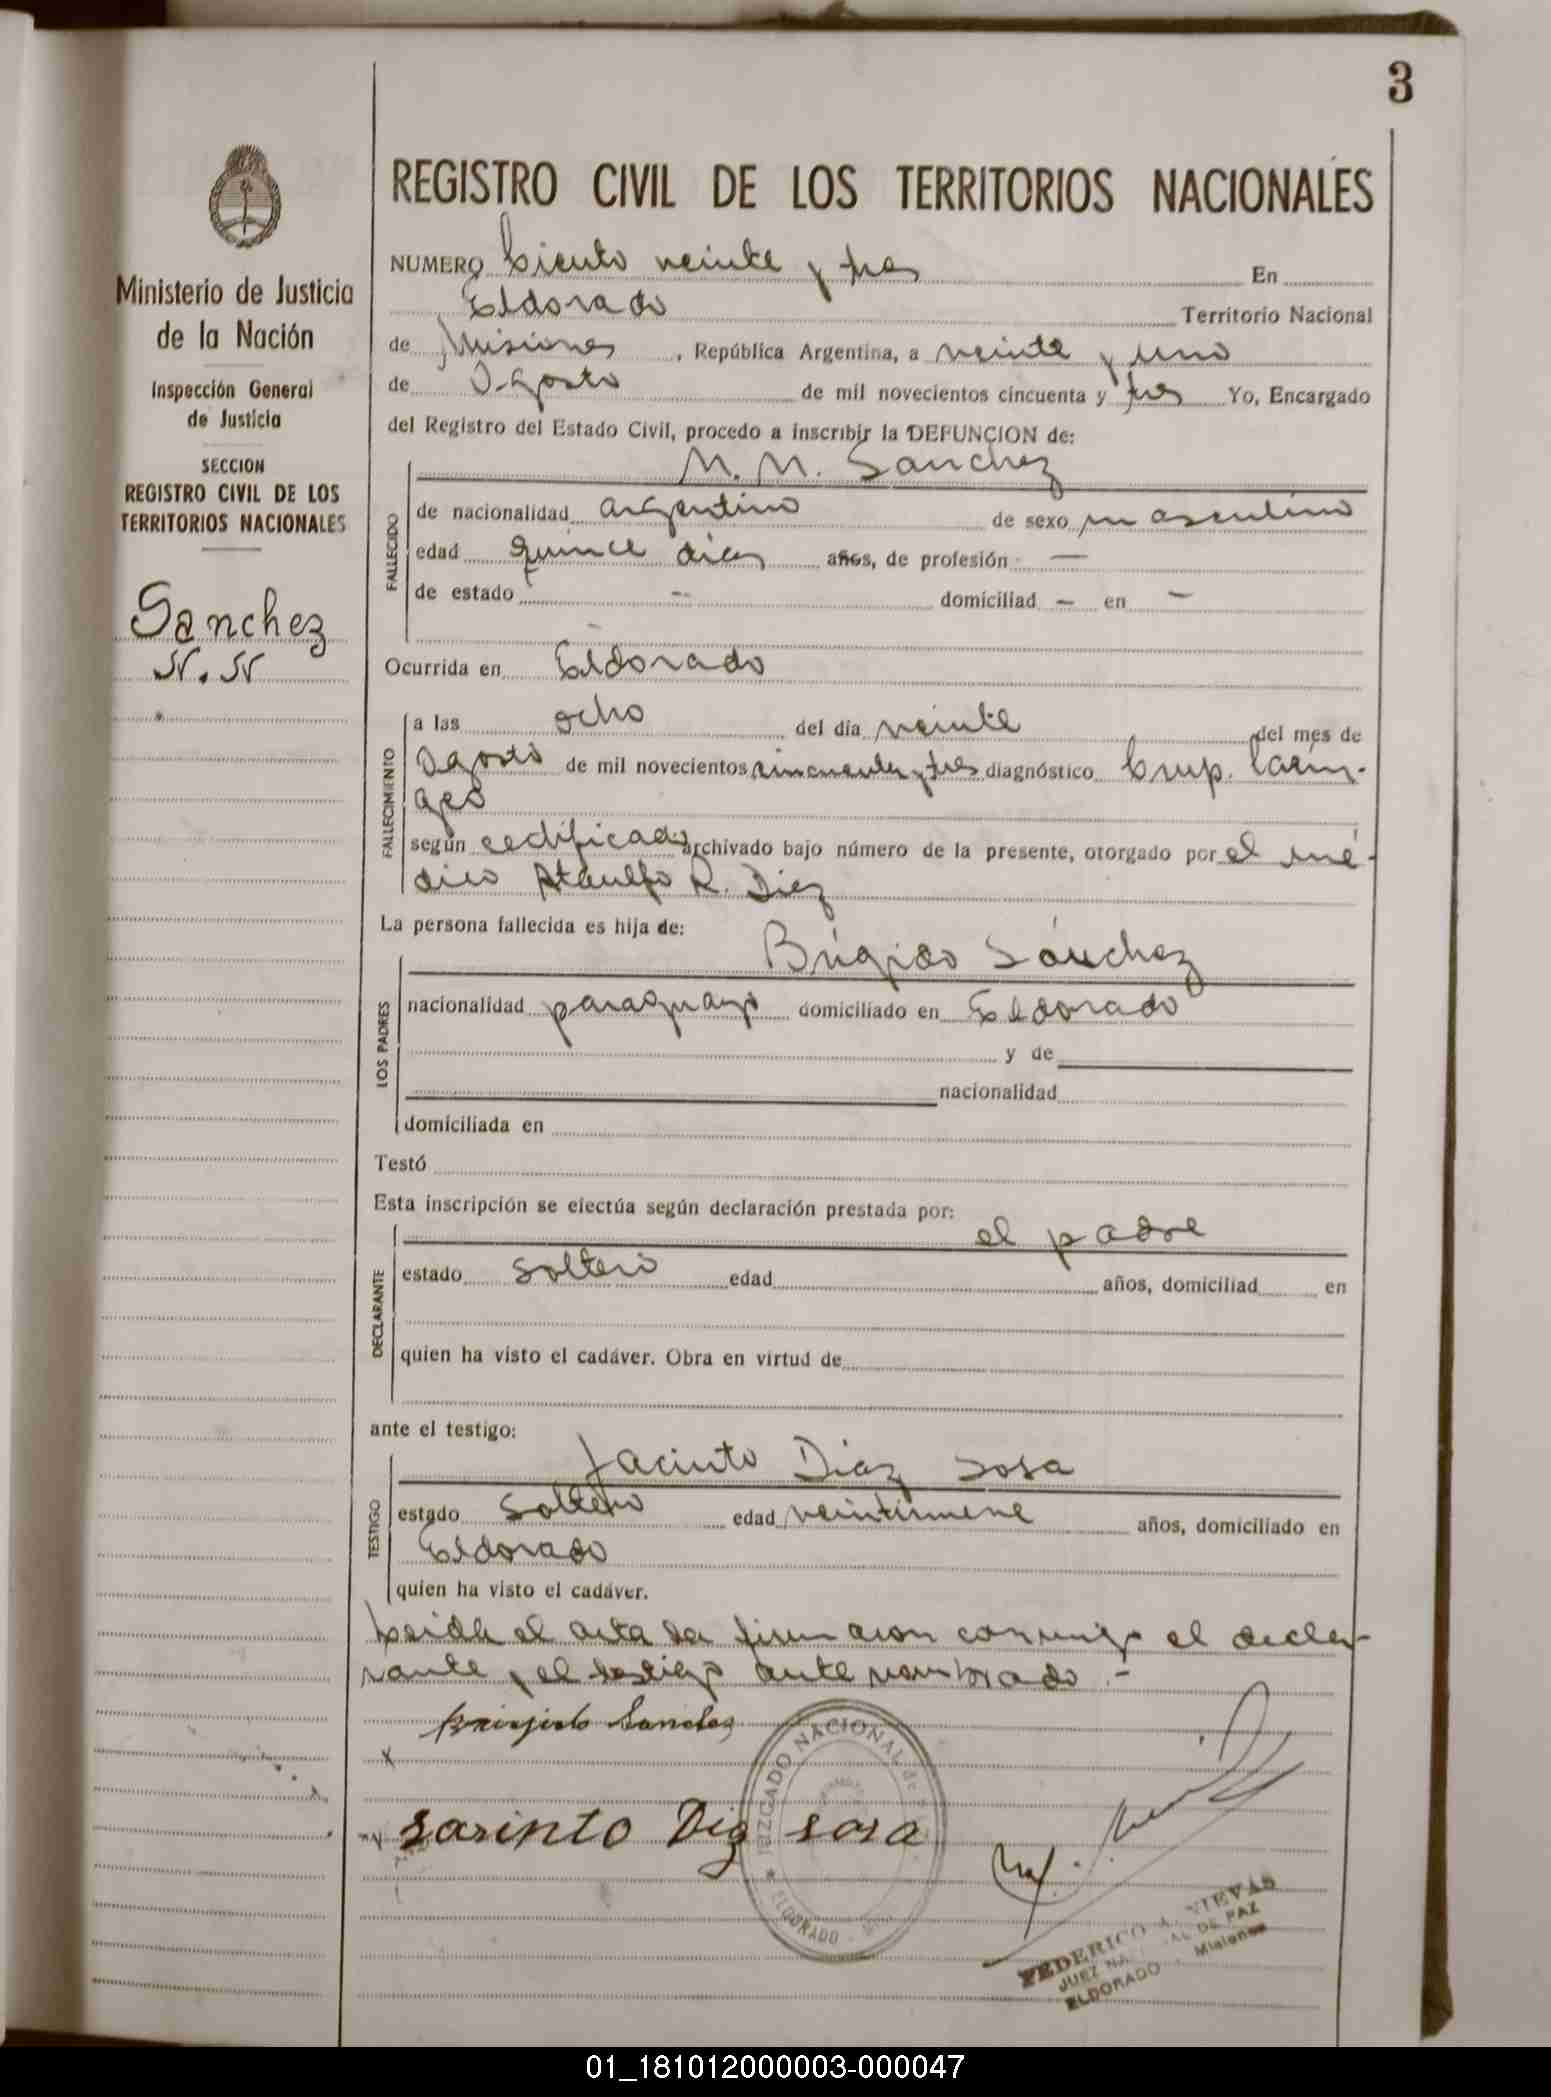 3
Ministerio de Justicia
de la Nación
Inspección General
de Justicia
SECCION
REGISTRO CIVIL DE LOS
TERRITORIOS NACIONALES
Sanchez
N. N
REGISTRO CIVIL DE LOS TERRITORIOS NACIONALES
NUMERO Ciento veinte y tres En
Eldorado Territorio Nacional
de Misiones, República Argentina, a veinte y uno
de Agosto de mil novecientos cincuenta y tres Yo, Encargado
del Registro del Estado Civil, procedo a inscribir la DEFUNCION de:
N. N. Sanchez
FALLECIDO
de nacionalidad argentino de sexo masculino
edad quince dias años, de profesión —
de estado — domiciliad — en —
Ocurrida en Eldorado
FALLECIMIENTO
a las ocho del día veinte del mes de
Agosto de mil novecientos cincuenta y tres diagnóstico Crup. Larin-
geo
según certificado archivado bajo número de la presente, otorgado por el mé-
dico Ataulfo R. Diez
La persona fallecida es hija de:
Brigido Sánchez
LOS PADRES
nacionalidad paraguayo domiciliado en Eldorado
y de
nacionalidad
domiciliada en
Testó
Esta inscripción se efectúa según declaración prestada por:
el padre
DECLARANTE
estado soltero edad años, domiciliad en
quien ha visto el cadáver. Obra en virtud de
ante el testigo:
Jacinto Diaz Sosa
TESTIGO
estado soltero edad veintinueve años, domiciliado en
Eldorado
quien ha visto el cadáver.
Leida el acta la firmaron conmigo el decla-
rante y el testigo ante nombrado.-
Brigido Sanchez
Jasinto Diz sosa
JUZGADO NACIONAL de
ELDORADO
FEDERICO A. NIEVAS
JUEZ NACIONAL DE PAZ
ELDORADO - Misiones
01_181012000003-000047